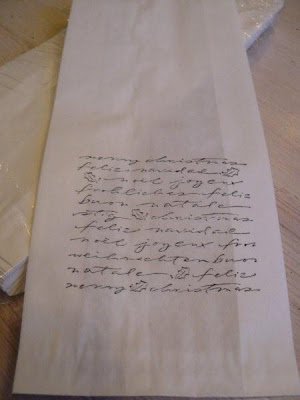 merry christmas
feliz navidad
noël joyeux
frohliches feliz
buon natale
christmas
feliz navidad
noël joyeux fro
weihnachten buon
natale feliz
merry christmas